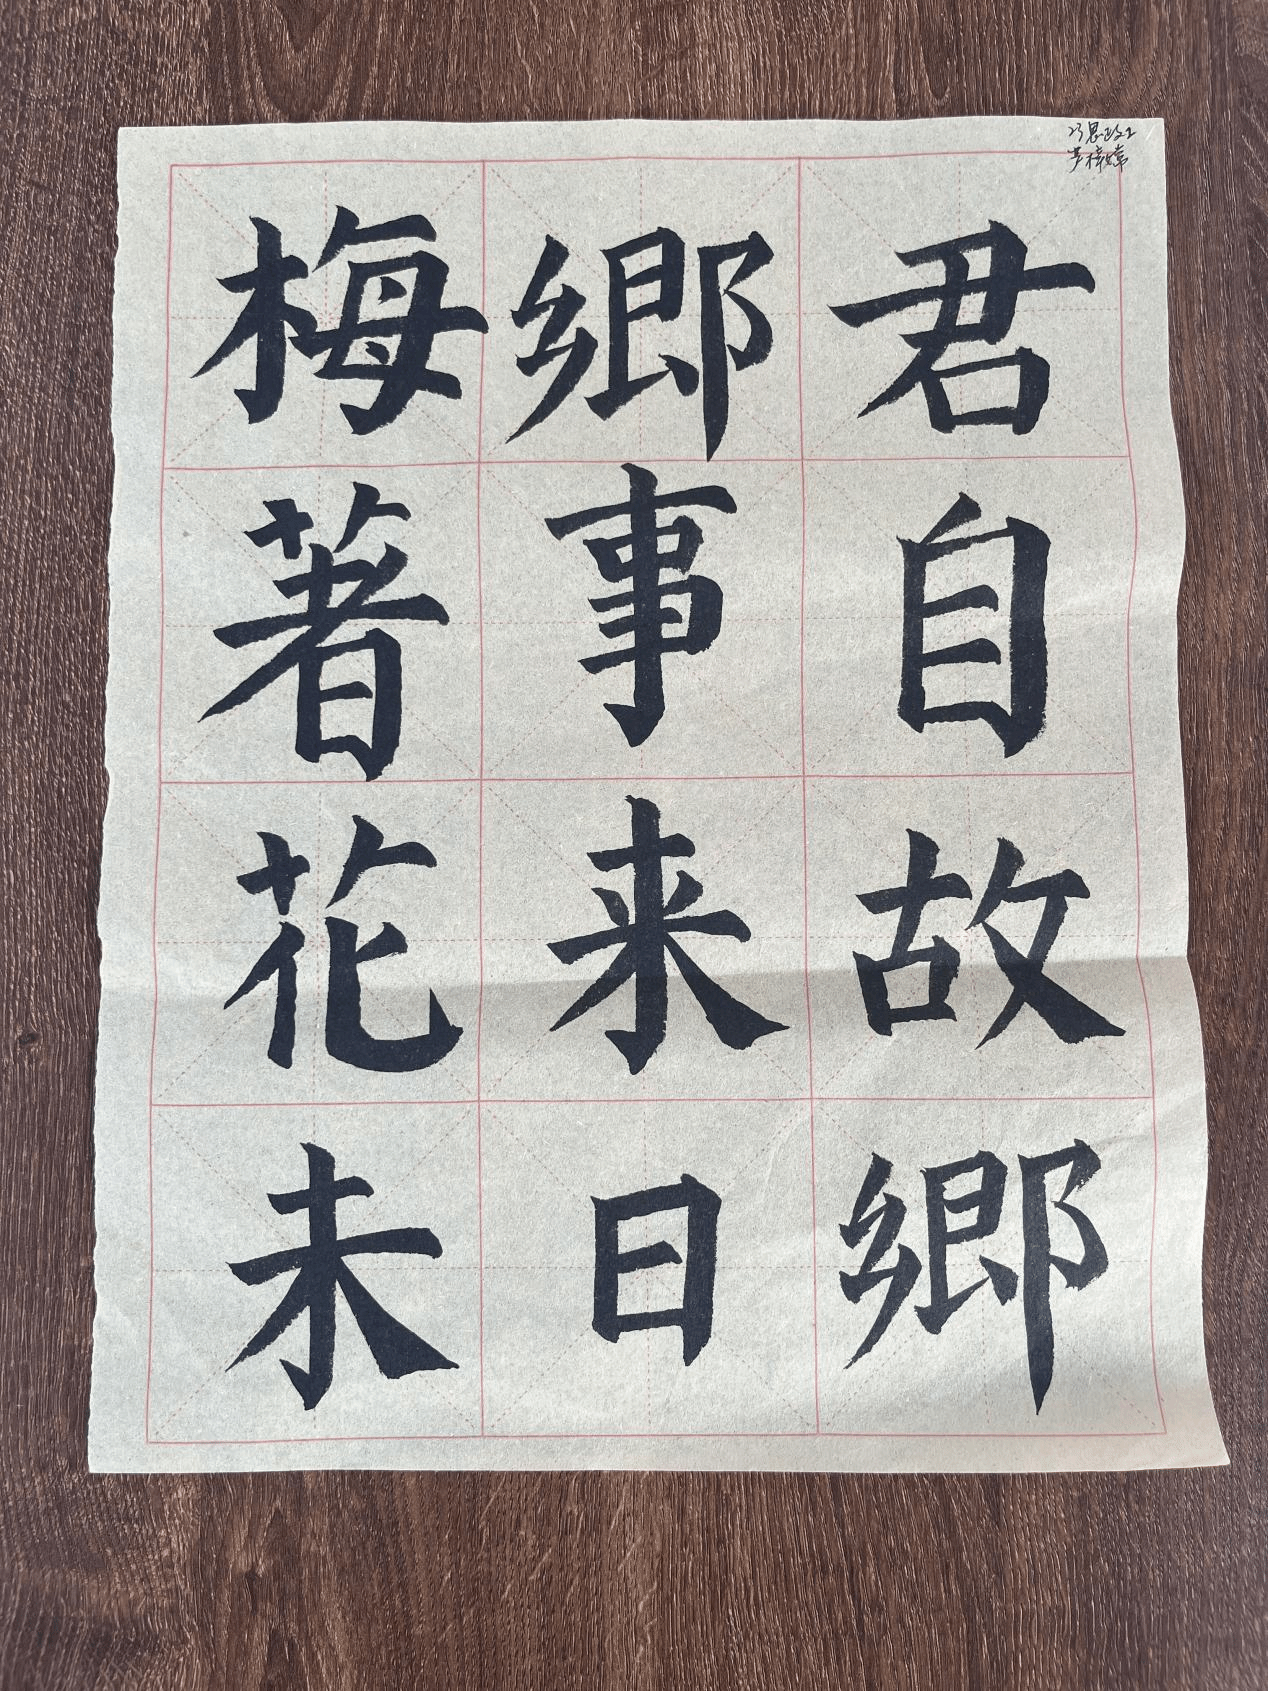 君自故鄉
鄉事来日
梅著花未